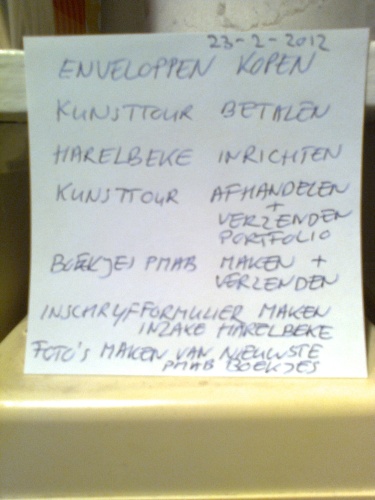 23-2-2012
ENVELOPPEN KOPEN
KUNSTTOUR BETALEN
HARELBEKE INRICHTEN
KUNSTTOUR AFHANDELEN
+
VERZENDEN
PORTFOLIO
BOEKJES PMAB MAKEN +
VERZENDEN
INSCHRYFFORMULIER MAKEN
INZAKE HARELBEKE
FOTO'S MAKEN VAN NIEUWSTE
PMAB BOEKJES